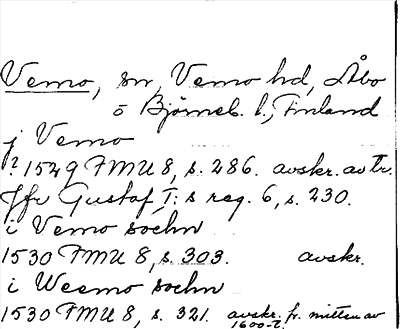 Vemo, sn, Vemo hd, Åbo
o Björneb. l., Finland
j Vemo
? 1529 FMU 8, s. 286. avskr. av Tr.
Jfr Gustaf I:s reg. 6, s. 230.
i Vemo sochn
1530 FMU 8, s. 303. avskr.
i Weemo sochn
1530 FMU 8, s. 321. avskr. fr. mitten av
1600-t.